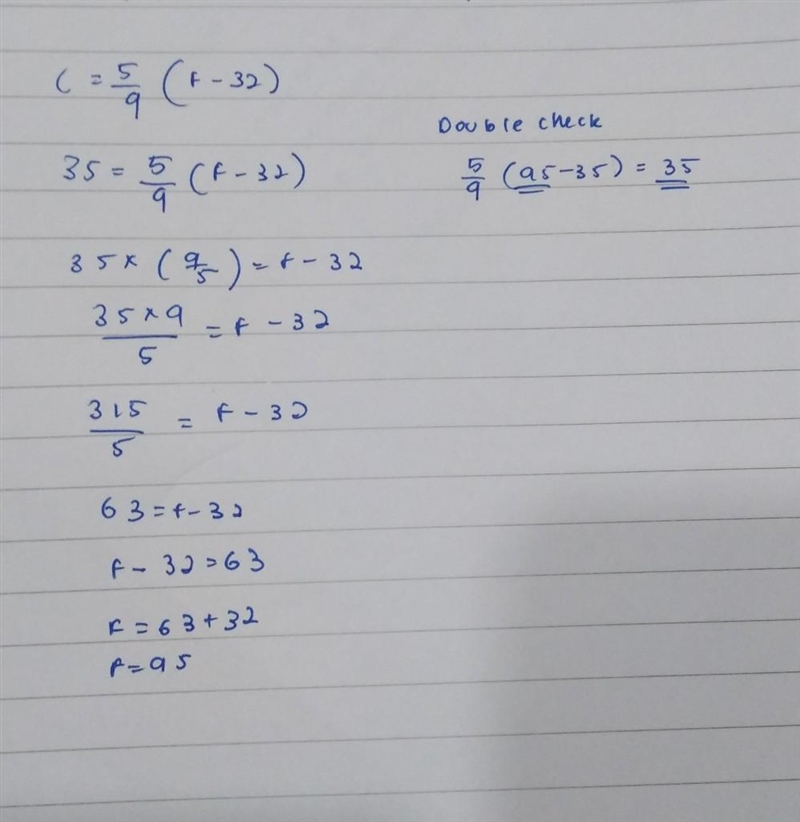 C = 5/9 (F - 32)
35 = 5/9 (F - 32)
35 × (9/5) = F - 32
35 × 9 / 5 = F - 32
315 / 5 = F - 32
63 = F - 32
F - 32 = 63
F = 63 + 32
F = 95
Double check
5/9 (95 - 35) = 35